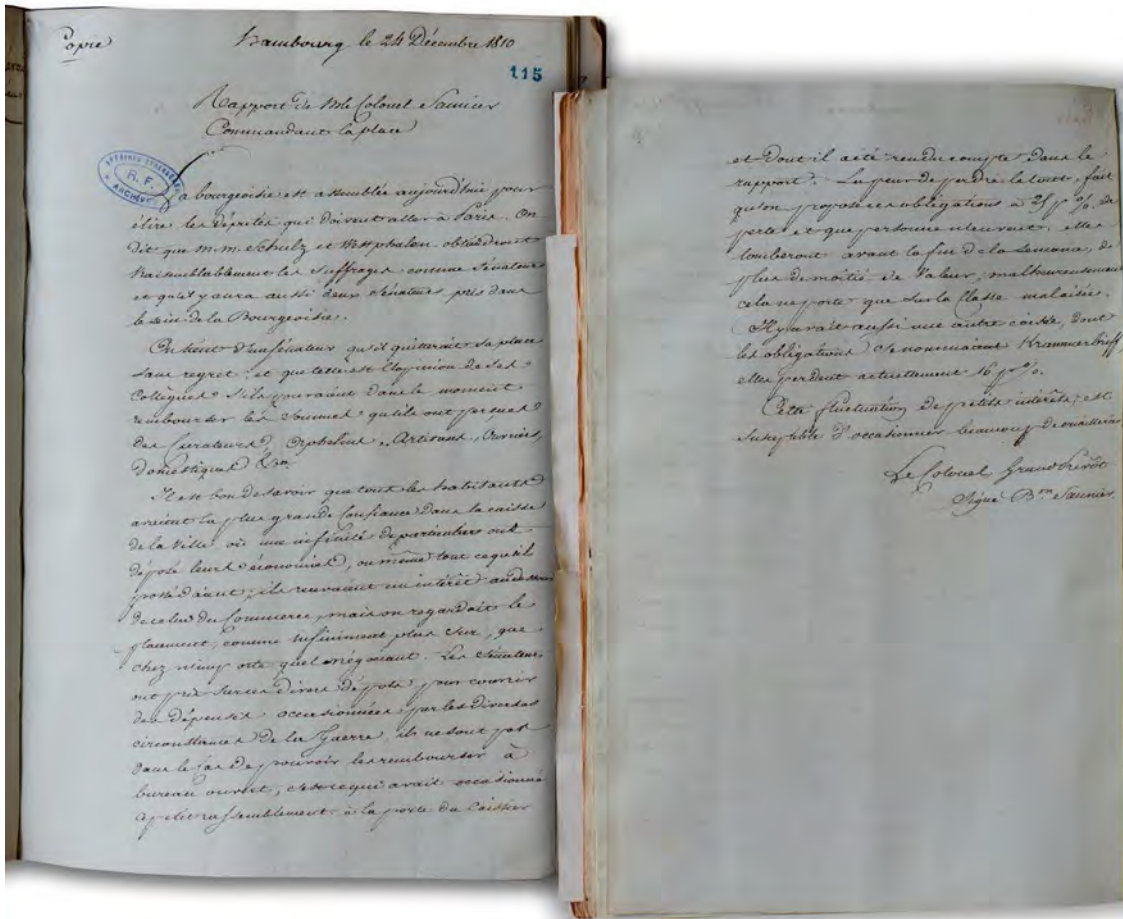 Copie
Hambourg le 24 Décembre 1810
115
Rapport de Mr le Colonel Saunier
Commandant la place
AFFAIRES ETRANGERES
R. F.
ARCHIVES
La bourgeoisie est assemblée aujourd'hui pour
élire les députés qui doivent aller à Paris. On
dit que m.m. Schulz et Westphalen obtiendront
vraisemblablement les suffrages comme Sénateurs
et qu'il y aura aussi deux Sénateurs pris dans
le sein de la Bourgeoisie.
On tient d'un Sénateur qu'il quitterait sa place
sans regret, et que telle est l'opinion de ses
Collègues s'ils pouvaient dans le moment
rembourser les Sommes qu'ils ont persues
des Curateurs, Orphelins, Artisans, Ouvriers,
domestiques &a.
Il est bon de savoir que tous les habitants
avaient la plus grande Confiance dans la caisse
de la Ville où une infinité de particuliers ont
déposé leurs économies, ou même tout ce qu'ils
possédaient; ils recevaient un intérêt au dessous
de celui du Commerce, mais on regardait le
placement, comme infiniment plus sur, que
chez n'importe quel négociant. Les Sénateurs
ont pris sur ces divers dépots pour couvrir
des dépenses occasionnées par les diverses
circonstances de la Guerre, ils ne sont pas
dans le Cas de pouvoir les rembourser à
bureau ouvert, c'est ce qui avait occasionné
le petit rassemblement à la porte du Caissier
et dont il a été rendu compte dans le
rapport. La peur de perdre le tout, fait
qu'on propose ces obligations à 25 p % de
perte et que personne n'en veut, elles
tomberont avant la fin de la Semaine, de
plus de moitié de Valeur, malheureusement
cela ne porte que sur la Classe malaisée.
Il y avait aussi une autre caisse, dont
les obligations se nommaient Krammerbrieff,
elles perdent actuellement 16 p %.
Cette fluctuation de petits intérêts, est
susceptible d'occasionner beaucoup de criailleries
Le Colonel Grand Prévôt
Signé Bon Saunier.